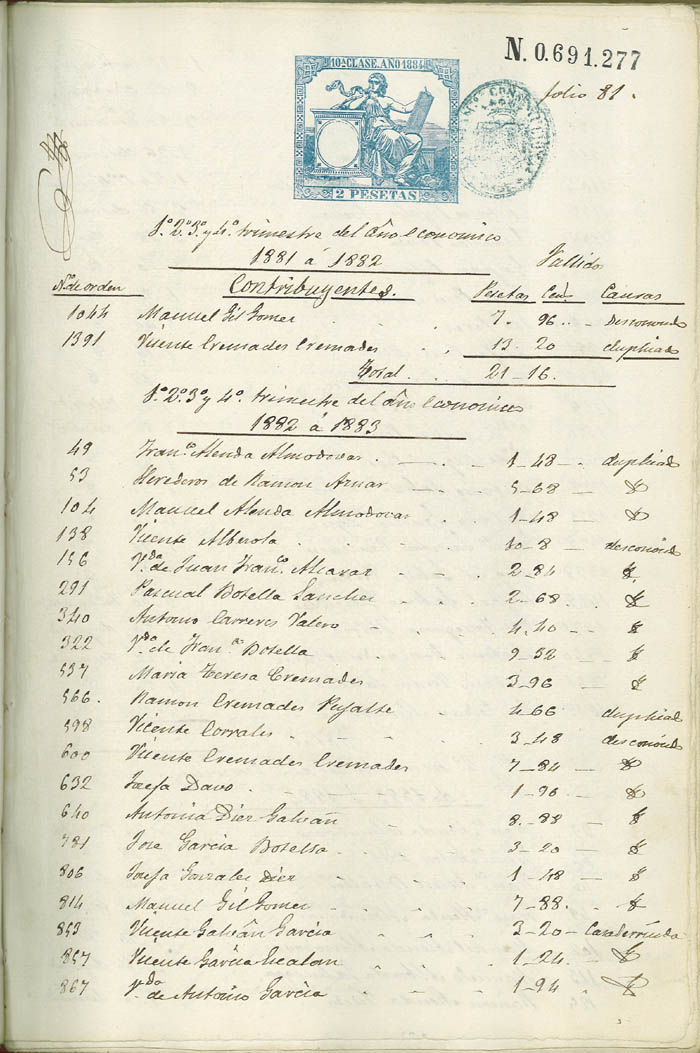 N. 0.691.277
10ª CLASE. AÑO 1884
2 PESETAS
folio 81.
1º 2º 3º y 4º trimestre del año economico
1881 á 1882 Fallidos
Nº de orden Contribuyentes. Pesetas Cens Causas
1044 Manuel Gil Gomer 7. 96.. Desconocido
1391 Vicente Cremades Cremades 13. 20 duplicado
Total 21-16.
1º 2º 3º y 4º trimestre del año economico
1882 á 1883
49 Franco Alenda Almodovar 1-48 duplicado
53 Herederos de Ramon Aznar 5-68
104 Manuel Alenda Almodovar 1-48
138 Vicente Alberola 10-8 desconocido
156 Vda de Juan Franco Alcaraz 2-84
291 Pascual Botella Sanchez 2-68
340 Antonio Carreres Valero 4-40
322 Vda de Franco Botella 9-52
537 Maria Teresa Cremades 3-96
566. Ramon Cremades Pujalte 4-66 duplicado
598 Vicente Corrales 3-48 desconocido
600 Vicente Cremades Cremades 7-84
632 Josefa Davo 1-96
640 Antonia Dier Galvañ 8-88
781 Jose Garcia Botella 3-20
806 Josefa Gonzales Dier 1-48
814 Manuel Gil Gomer 7-88.
853 Vicente Galvañ Garcia 3-20 Casa derruida
857 Vicente Garcia Escalan 1-24.
867 Vda de Antonio Garcia 1-94